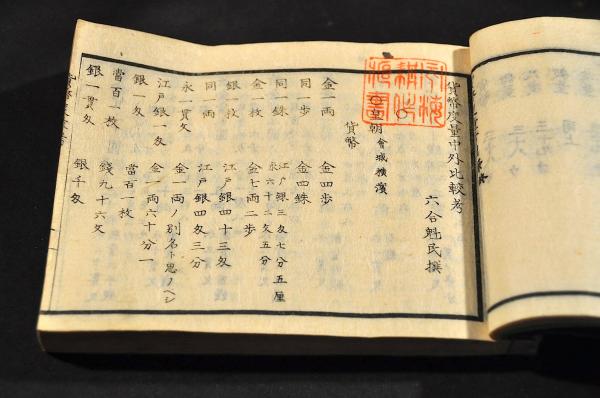 貨幣度量中外比較考
六合魁民撰
皇朝 會城横濱
貨幣
金一両 金四歩
同一歩 金四銖
同一銖 江戸銀三匁七分五厘
永六十二文五分
金一枚 金七両二歩
銀一枚 江戸銀四十三匁
同一両 江戸銀四匁三分
永一貫文 金一両ノ別名ト思ノヘシ
江戸銀一匁 金一両六十分一
銀一匁 當百一枚
當百一枚 錢九十六文
銀一貫匁 銀千匁